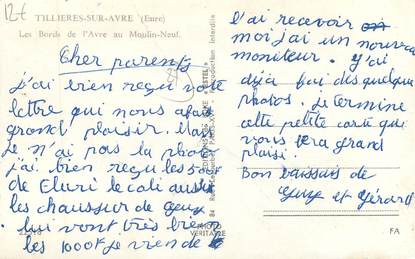 12€
TILLIERES-SUR-AVRE (Eure)
Les Bords de l'Avre au Moulin-Neuf.
Cher parents
j'ai bien reçu votre
lettre qui nous a fait
grand plaisir. Mais
je n'ai pas la photo
j'ai bien reçu les 50
de le coli aussi
les chaussur de Guy
lui vont très bien
les 1000F je vien de
l'ai recevoir
moi j'ai un nouveau
moniteur. j'ai
déja fai des quelque
photos. je termine
cette petite carte qui
vous fera grand
plaisi.
Bon baissers de
Guy et Gérard
PHOTO
VERITABLE
FA